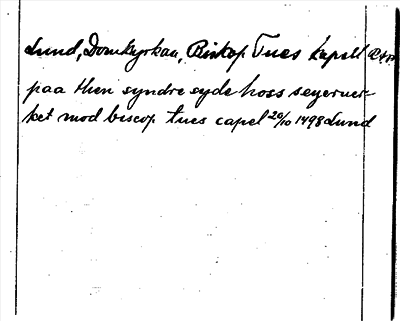 Lund, Domkyrkan, Biskop Tues kapell
paa then syndre syde hoss seyeruer-
ket mod biscop tues capel 20/10 1498 Lund